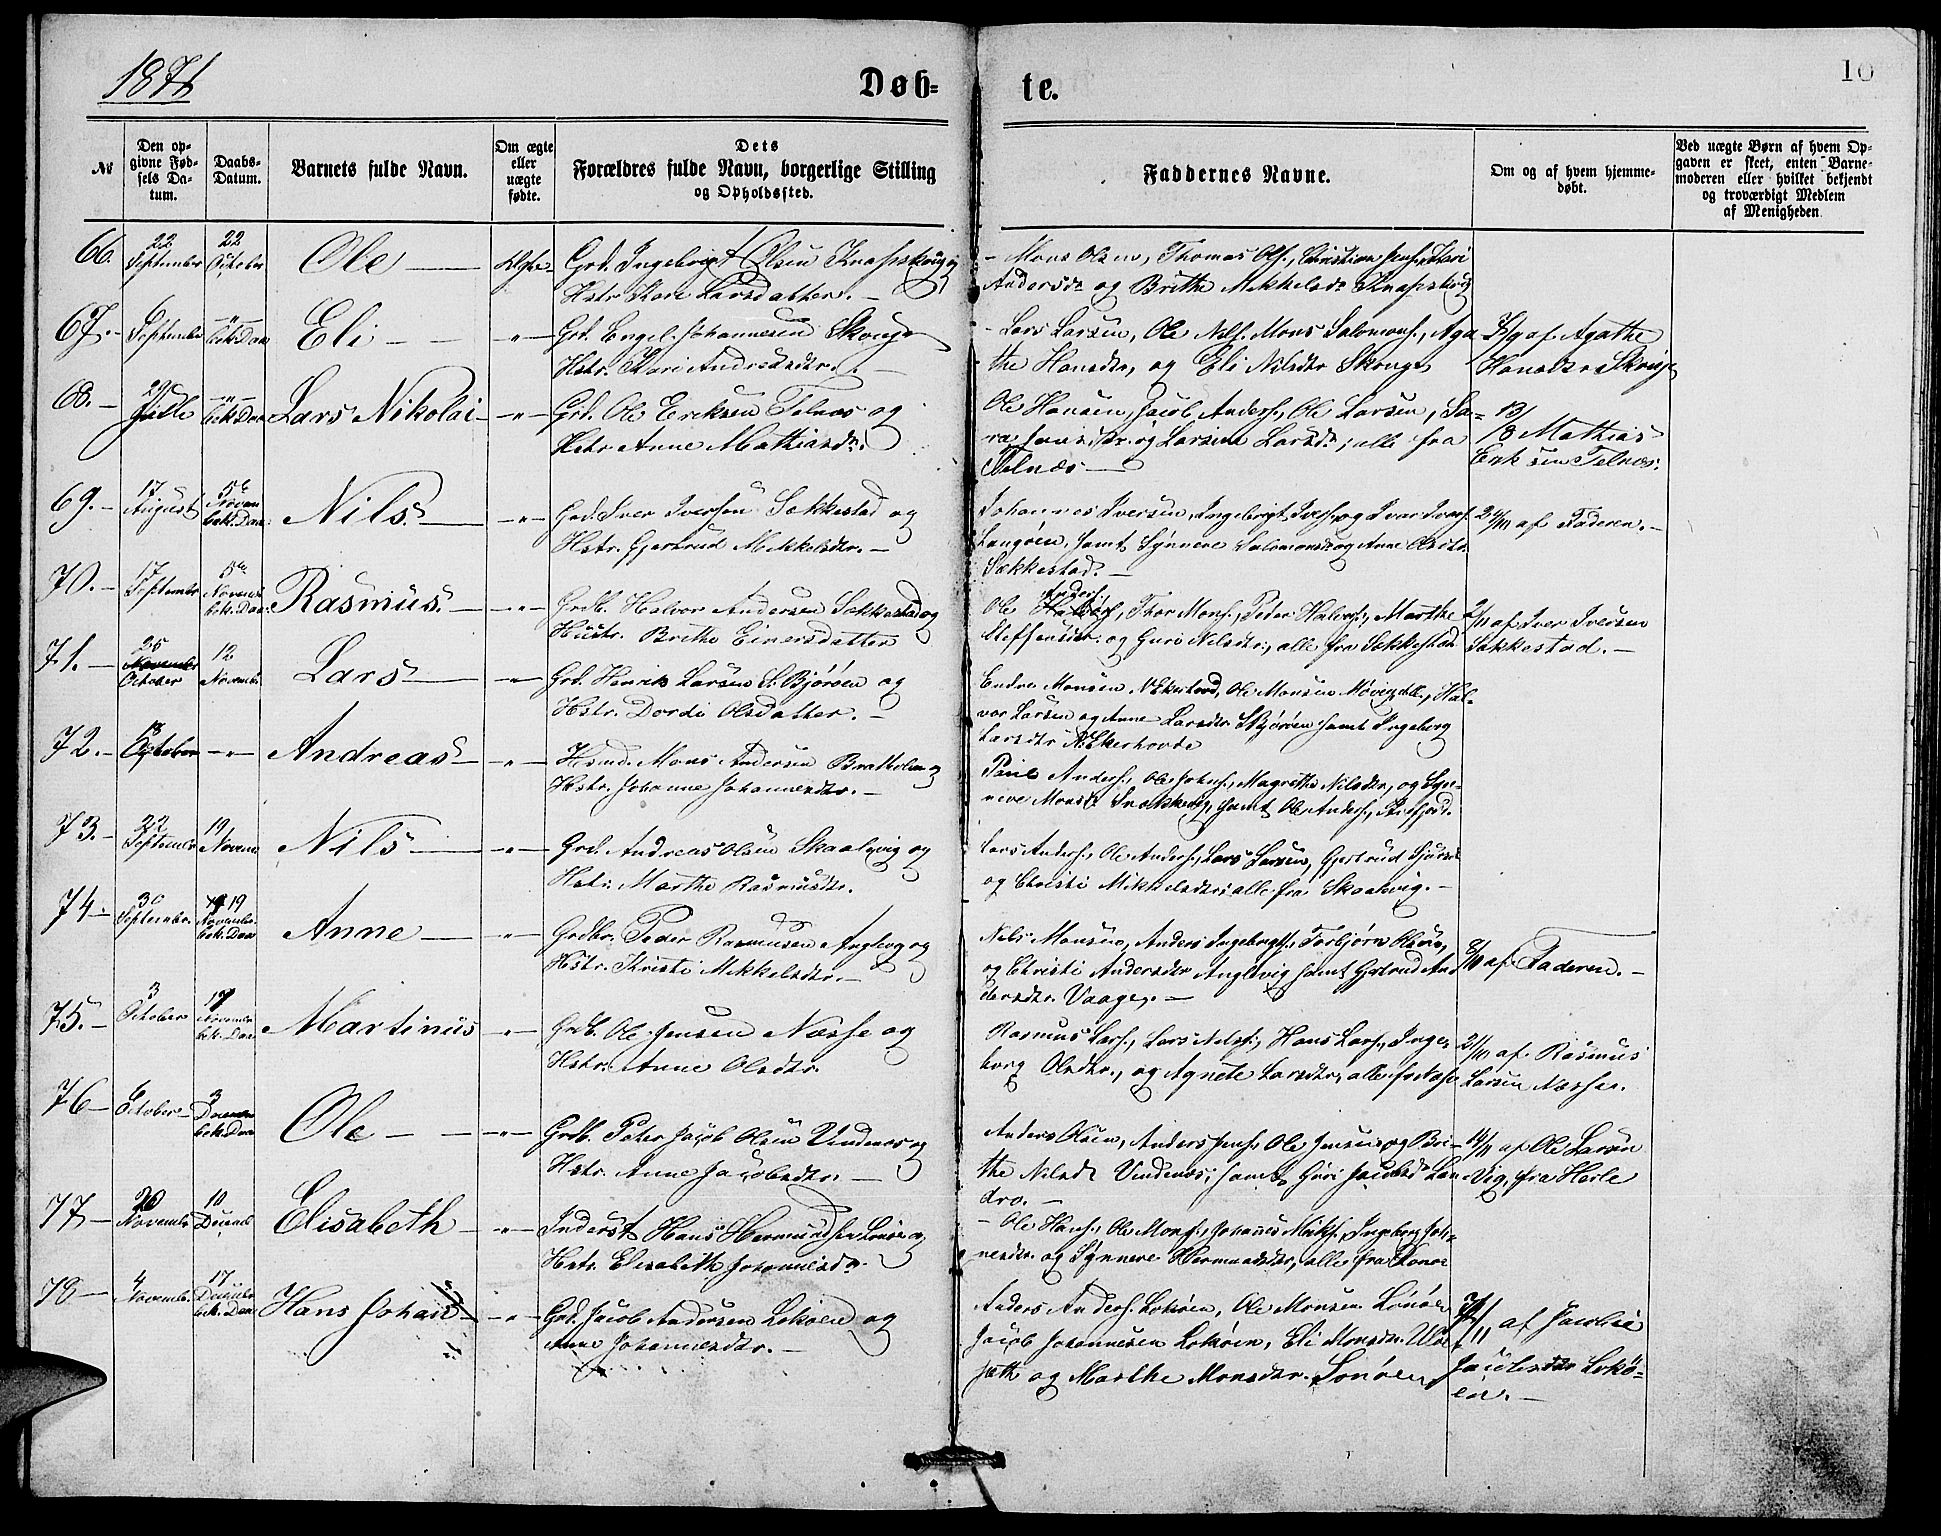 1871
Døb=
te.
10
№
Den op-
givne Fød-
sels Da-
tum.
Daabs-
Datum.
Barnets fulde Navn.
Om ægte
eller
uægte
fødte.
Dets
Forældres fulde Navn, borgerlige Stilling
og Opholdssted.
Faddernes Navne.
Om og af hvem hjemme-
døbt.
Ved uægte Børn af hvem Op-
gaven er skeet, enten Barne-
moderen eller hvilket bekjendt
og troværdigt Medlem
af Menigheden
66. 22 September 22 October Ole Ægte Grd. Ingebrigt Olsen Knapskoug og
Hstr. Kari Larsdatter.
Mons Olsen, Thomas Ols., Christian Jens., Kari
Andersdr og Brithe Mikkelsdr Knapskoug
67. September -"- bek. Daa Eli -"- Grd. Engel Johannesen Skouge
Hstr. Kari Andreasdtr.
Lars Larsen, Ole Nils. Mons Salomons., Aga
the Hansdtr, og Eli Nilsdtr Skouge
af Agathe
Hansdtr Skouge
68. 29 Juli -"- bek. Daa Lars Nikolai -"- Grd. Ole Eriksen Telnæs og
Hstr Anne Mathiasdr.
Ole Hansen, Jacob Anders., Ole Larsen, Sa=
ra Jansdtr. og Larsine Larsdr, alle fra
Telnæs
13/8 Mathias
Eriksen Telnæs.
69. 17 August 5te Novem bek. Daa Nils. -"- Grd. Iver Iversen Sækkestad og
Hstr. Gjertrud Mikkelsdtr.
Johannes Iversen, Ingebrigt Ivers. og Ivar Ivars.
Langøen, samt Synneve Salomonsdr og Anne Olsdtr
Sækkestad.
af Faderen.
70. 17 September 5te Novemb bek. Daa. Rasmus. -"- Grdb. Halvor Andersen Sækkestad og
Hustr. Brithe Einersdatter
Ole Anders., Thor Mons., Peder Halvors., Marthe
Steffensdtr. og Guro Nilsdtr., alle fra Sækkestad
2/11 af Iver Iversen
Sækkestad.
71. 25 October 12 Novemb. Lars -"- Grd. Henrik Larsen L. Bjørøen og
Hstr. Dordi Olsdatter.
Endre Monsen N Ekerhovd, Ole Monsen Møvig, Hal-
vor Larsen og Anne Larsdtr. L Bjørøen samt Ingeborg
Larsdtr N Ekerhovde
72. 18 October -"- Andreas -"- Husmd. Mons Andersen Bratholmen og
Hstr. Johanne Johannesdtr.
Anders., Ole Johns., Magrethe Nilsdtr, og Syn-
neve Monsdr Snekkevig, samt Ole Anders.
73. 22 September 19 Novem Nils -"- Grd. Andreas Olsen Skaalevig og
Hstr. Marthe Rasmusdtr.
Lars Anders., Ole Anders., Lars Larsen, Gjertrud
og Christi Mikkelsdtr; alle fra Skaalevig.
74 30 September. 19 Novembr. bek. Daa Anne -"- Grdbr. Peder Rasmussen Anglevig og
Hstr. Kristi Mikkelsdtr.
Nils Monsen, Anders Ingebrigts., Torbjørn Olsen,
og Christi Andersdtr Anglevig samt Gjertrud An
dersdtr. Vaage.
8/11 af Faderen.
75. 3 October 19 Novembr bek. Daa Martinus -"- Grdb. Ole Jensen Næsse og
Hstr. Anne Olsdtr.
Rasmus Lars., Lars Nils., Hans Lars., Inge-
borg Olsdtr., og Agnete Larsdtr, alle fr Næsse
af Rasmus
Larsen Næsse.
76 October 3 Decembr bek. Daa Ole -"- Grdb. Peter Jacob Olsen Vindenæs og
Hstr. Anne Jacobsdtr.
Anders Olsen, Anders Jens., Ole Jensen og Bri-
the Nilsdr Vindenæs; samt Guri Jacobsdr Lan
dro.
af Ole Larsen
Vig, fra Herle
77 Novembr 10 Decemb Elisabeth -"- Inderst Hans Hermundsen Lonøen og
Hstr. Elisabeth Johannesdr.
Ole Hans., Ole Mons., Johannes Mich., Ingeborg Joh-
nesdtr og Synneve Hermundsdtr, alle fra Lonøe
78 4 Novembr. 17 Decembr bek. Daa Hans Johan -"- Grd. Jacob Andersen Lokøen og
Anne Johannesdtr.
Anders Anders. Lokøen, Ole Monsen Lonøen
Jacob Johannesen Lokøen, Eli Monsdtr. Ulve
sæth og Marthe Monsdtr. Lonøen
af Jacobie
Jacobsdtr Lokø=
en.